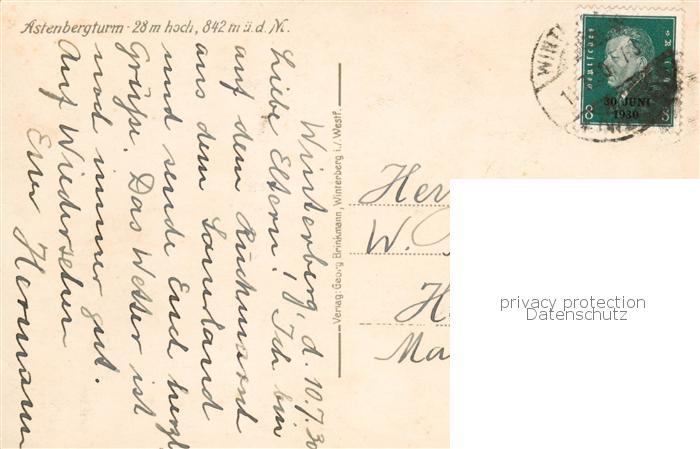 Astenbergturm - 28 m hoch, 842 m ü. d. N.
Winterberg, d. 10.7.30
Liebe Eltern! Ich bin
auf dem Rückmarsch
aus dem Sauerland
und sende Euch herzl.
Grüße. Das Wetter ist
noch immer gut.
Auf Wiedersehen
Euer Hermann
Verlag: Georg Brinkmann, Winterberg i./Westf.
WINT
Deutsches Reich
30. JUNI
1930
8 8
Her
W.
H
Ma
privacy protection
Datenschutz